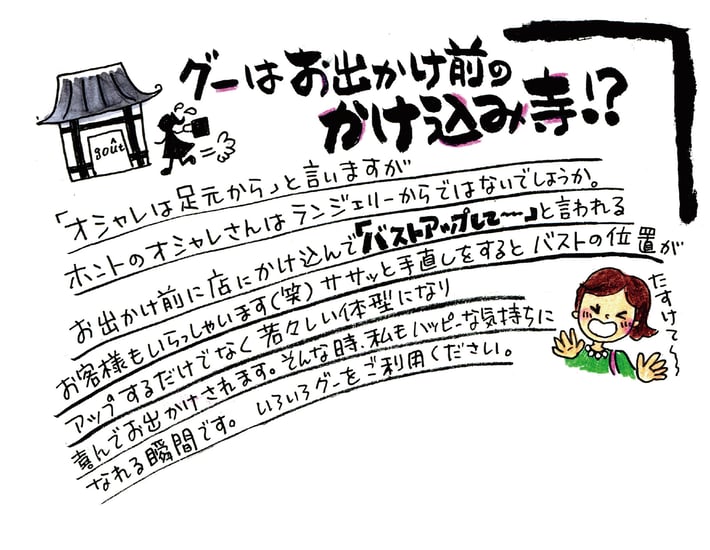 グーはお出かけ前の
かけ込み寺!?
goût
「オシャレは足元から」と言いますが
ホントのオシャレさんはランジェリーからではないでしょうか。
お出かけ前に店にかけ込んで「バストアップして〜〜」と言われる
お客様もいらっしゃいます(笑)ササッと手直しをするとバストの位置が
アップするだけでなく若々しい体型になり
喜んでお出かけされます。そんな時、私もハッピーな気持ちに
なれる瞬間です。 いろいろグーをご利用ください。
たすけて〜〜